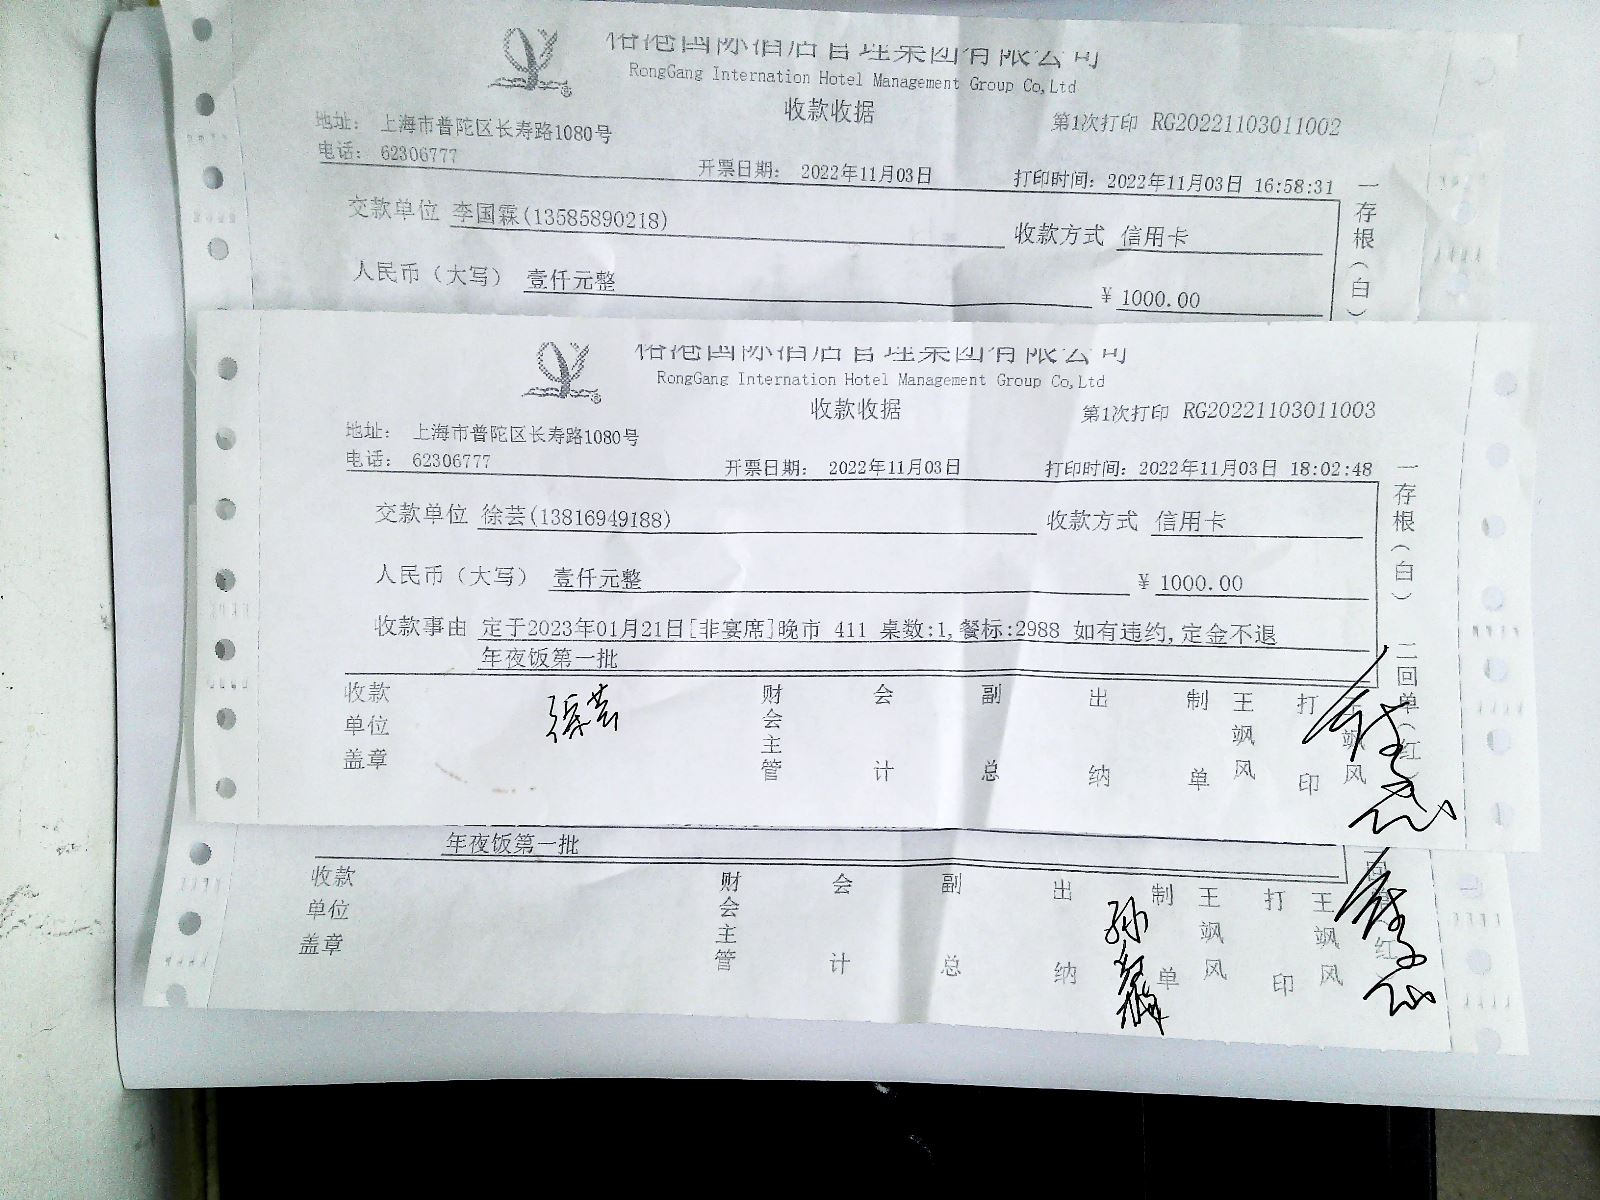 国际酒店管理集团有限公司
RongGang Internation Hotel Management Group Co,Ltd
收款收据
地址: 上海市普陀区长寿路1080号
第1次打印 RG20221103011002
电话: 62306777
开票日期: 2022年11月03日
打印时间: 2022年11月03日 16:58:31
交款单位 李国霖(13585890218)
收款方式 信用卡
人民币（大写） 壹仟元整
¥ 1000.00
一存根（白）
国际酒店管理集团有限公司
RongGang Internation Hotel Management Group Co,Ltd
收款收据
第1次打印 RG20221103011003
地址: 上海市普陀区长寿路1080号
电话: 62306777
开票日期: 2022年11月03日
打印时间: 2022年11月03日 18:02:48
交款单位 徐芸(13816949188)
收款方式 信用卡
人民币（大写） 壹仟元整
¥ 1000.00
收款事由 定于2023年01月21日[非宴席]晚市 411 桌数:1,餐标:2988 如有违约,定金不退
年夜饭第一批
一存根（白） 二回单（红
收款单位盖章
财会主管
会计
副总
出纳
制单
王飒风
打印
王飒风
年夜饭第一批
收款单位盖章
财会主管
会计
副总
出纳
制单
王飒风
打印
王飒风